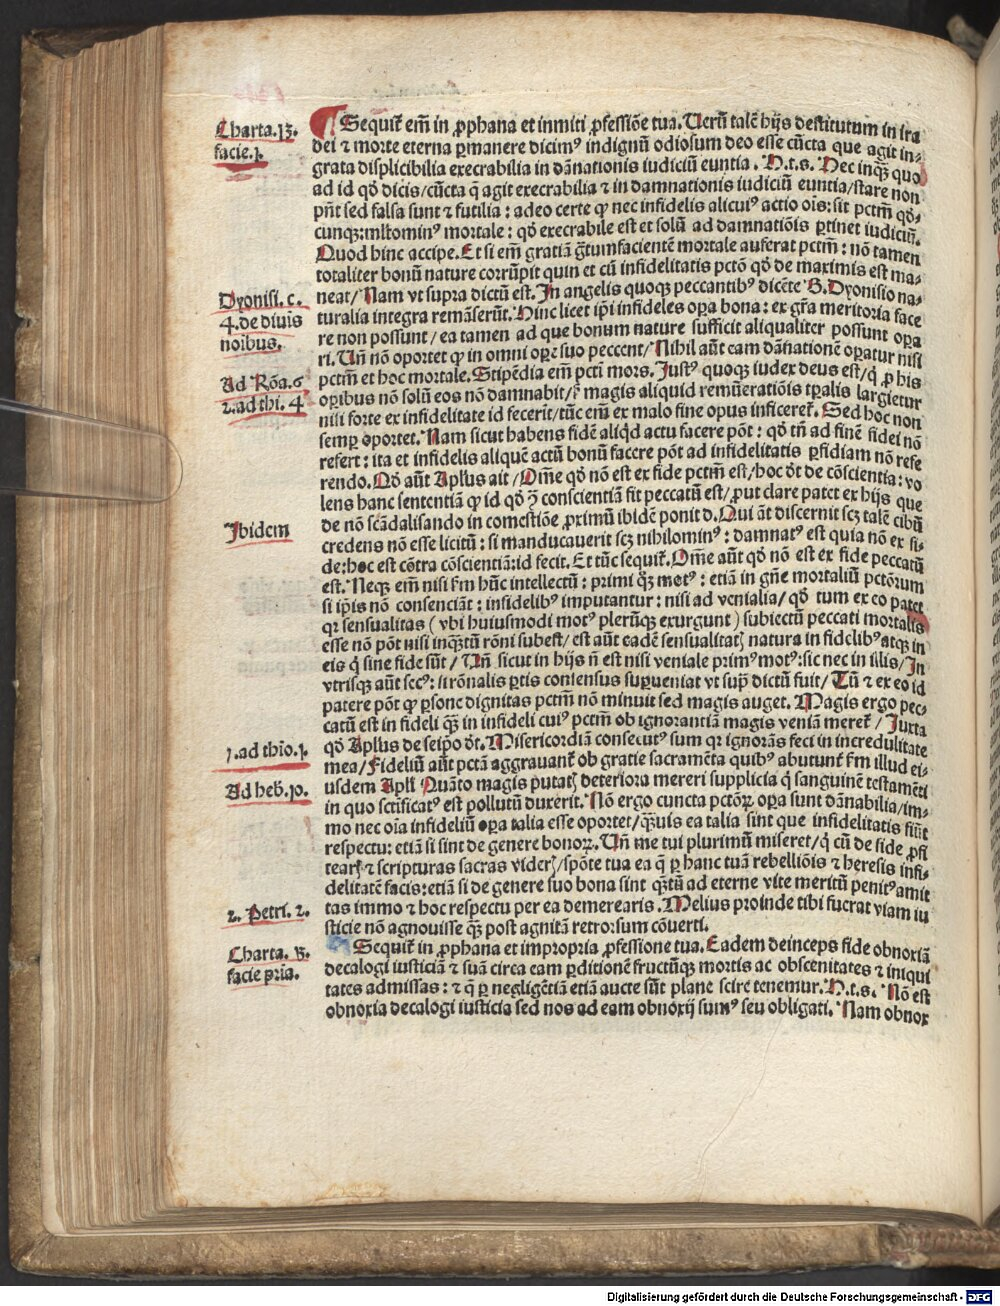 Charta.13.
facie.1.
¶ Sequit̃ em̃ in ꝓphana et inmiti ꝓfessiõe tua. Verũ talẽ hijs destitutum in ira
dei ⁊ morte eterna ꝑmanere dicimꝰ indignũ odiosum deo esse cũcta que agit in⸗
grata displicibilia execrabilia in dãnationis iudiciũ euntia. N.t.s. Nec inqꝫ quo
ad id qđ dicis/cũcta q̃ agit execrabilia ⁊ in damnationis iudiciũ euntia/stare non
pñt sed falsa sunt ⁊ futilia: adeo certe ꝙ nec infidelis alicuiꝰ actio oĩs: sit pctm̃ qđ⸗
cunqꝫ:mltominꝰ mortale: qđ execrabile est et solũ ad damnatiõis ꝑtinet iudiciũ.
Quod hinc accipe. Et si em̃ gratiã g̃tumfacientẽ mortale auferat pctm̃: nõ tamen
totaliter bonũ nature corrũpit quin et cũ infidelitatis pctõ qđ de maximis est ma⸗
neat/ Nam vt supra dictũ est. In angelis quoqꝫ peccantibꝰ dicẽte B. Dyonisio na⸗
Dyonisi. c.
4. de diuis
noibus.
turalia integra remãserũt. Hinc licet ip̃i infideles oꝑa bona: ex gr̃a meritoria face
re non possunt/ ea tamen ad que bonum nature sufficit aliqualiter possunt oꝑa
ri. Vñ nõ oportet ꝙ in omni oꝑe suo peccent/ Nihil aũt eam dãnationẽ oꝑatur nisi
Ad Rõa.6
2.ad thi. 4
pctm̃ et hoc mortale. Stipẽdia em̃ pcti mors. Justꝰ quoqꝫ iudex deus est/q̇ ꝓ his
oꝑibus nõ solũ eos nõ damnabit/ magis aliquid remũeratiõis tꝑalis largietur
nisi forte ex infidelitate id fecerit/tũc em̃ ex malo fine opus inficeret̃. Sed hoc non
semꝑ oportet. Nam sicut habens fidẽ aliqd actu facere põt: qđ tñ ad finẽ fidei nõ
refert: ita et infidelis aliquẽ actũ bonũ facere põt ad infidelitatis ꝑfidiam nõ refe
rendo. Qđ aũt Apl̃us ait/ Om̃e qđ nõ est ex fide pctm̃ est/hoc õt de cõscientia: vo
lens hanc sententiã ꝙ id qđ ↄ̃ conscientiã fit peccatũ est/ ꝓut clare patet ex hijs que
Ibidem
de nõ scãdalisando in comestiõe ꝓximũ ibidẽ ponit d. Qui ãt discernit scꝫ talẽ cibũ
credens nõ esse licitũ: si manducauerit scꝫ nihilominꝰ: damnatꝰ est quia nõ ex fi⸗
de:hoc est cõtra cõscientiã:id fecit. Et tũc sequit̃. Om̃e aũt qđ nõ est ex fide peccatũ
est. Neqꝫ em̃ nisi ẜm hũc intellectũ: primi q̃ꝫ motꝰ: etiã in gñe mortaliũ pctõrum
si ip̃is nõ consenciãt: infidelibꝰ imputantur: nisi ad venialia/ qđ tum ex eo patet
qꝛ sensualitas (vbi huiusmodi motꝰ plerũqꝫ exurgunt) subiectũ peccati mortalis
esse nõ põt nisi inq̃ꝫtũ rõni subest/ est aũt eadẽ sensualitatꝭ natura in fidelibꝰ atqꝫ in
eis q̇ sine fide sũt/ Vñ sicut in hijs ñ est nisi veniale primꝰ motꝰ: sic nec in illis/ In
vtrisqꝫ aũt secꝰ: si rõnalis ꝑtis consensus suꝑueniat vt sup̃ dictũ fuit/ Tũ ⁊ ex eo id
patere põt ꝙ ꝑsone dignitas pctm̃ nõ minuit sed magis auget. Magis ergo pec⸗
catũ est in fideli q̃ꝫ in infideli cuiꝰ pctm̃ ob ignorantiã magis veniã meret̃/ Juxta
1.ad thio.1.
qđ Apl̃us de seip̃o õt. Misericordiã consecutꝰ sum qꝛ ignorãs feci in incredulitate
mea/ Fideliũ aũt pctã aggrauant̃ ob gratie sacramẽta quibꝰ abutunt̃ ẜm illud ei⸗
Ad heb̃.10.
usdem Apl̃i Quãto magis putatꝭ deteriora mereri supplicia q̇ sanguinẽ testamẽti
in quo sctificatꝰ est pollutũ duxerit. Nõ ergo cuncta pctõꝝ oꝑa sunt dãnabilia/im⸗
mo nec oĩa infideliũ oꝑa talia esse oportet/q̃ꝫuis ea talia sint que infidelitatis fiũt
respectu: etiã si sint de genere bonoꝝ. Vñ me tui plurimũ miseret/ q̇ cũ de fide ꝓfi
tearꝭ ⁊ scripturas sacras viderꝭ/spõte tua ea q̃ ꝑ hanc tuã rebelliõis ⁊ heresis infi⸗
delitatẽ facis:etiã si de genere suo bona sint q̃ꝫtũ ad eterne vite meritũ penitꝰ amit
2. Petri. 2.
tas immo ⁊ hoc respectu per ea demerearis. Melius proinde tibi fuerat viam iu
sticie nõ agnouisse q̃ꝫ post agnitã retrorsum cõuerti.
Charta. 13.
facie pria.
Sequit̃ in ꝓphana et impropria ꝓfessione tua. Eadem deinceps fide obnoxiã
decalogi iusticiã ⁊ suã circa eam ꝑditionẽ fructũqꝫ mortis ac obscenitates ⁊ iniqui
tates admissas: ⁊ q̃ ꝑ negligẽtiã etiã aucte sũt plane scire tenemur. N.t.s. Nõ est
obnoxia decalogi iusticia sed nos ad eam obnoxij sumꝰ seu obligati. Nam obnox
Digitalisierung gefördert durch die Deutsche Forschungsgemeinschaft - DFG